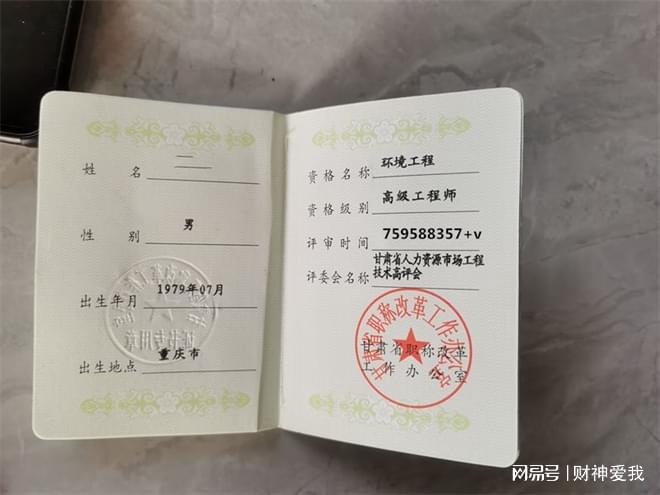 姓 名 二
性 别 男
出生年月 1979年07月
出生地点 重庆市
证书专用章
资格名称 环境工程
资格级别 高级工程师
评审时间 759588357+v
评委会名称 甘肃省人力资源市场工程
技术高评会
甘肃省职称改革工作办公室
甘肃省职称改革
工作办公室
网易号 | 财神爱我